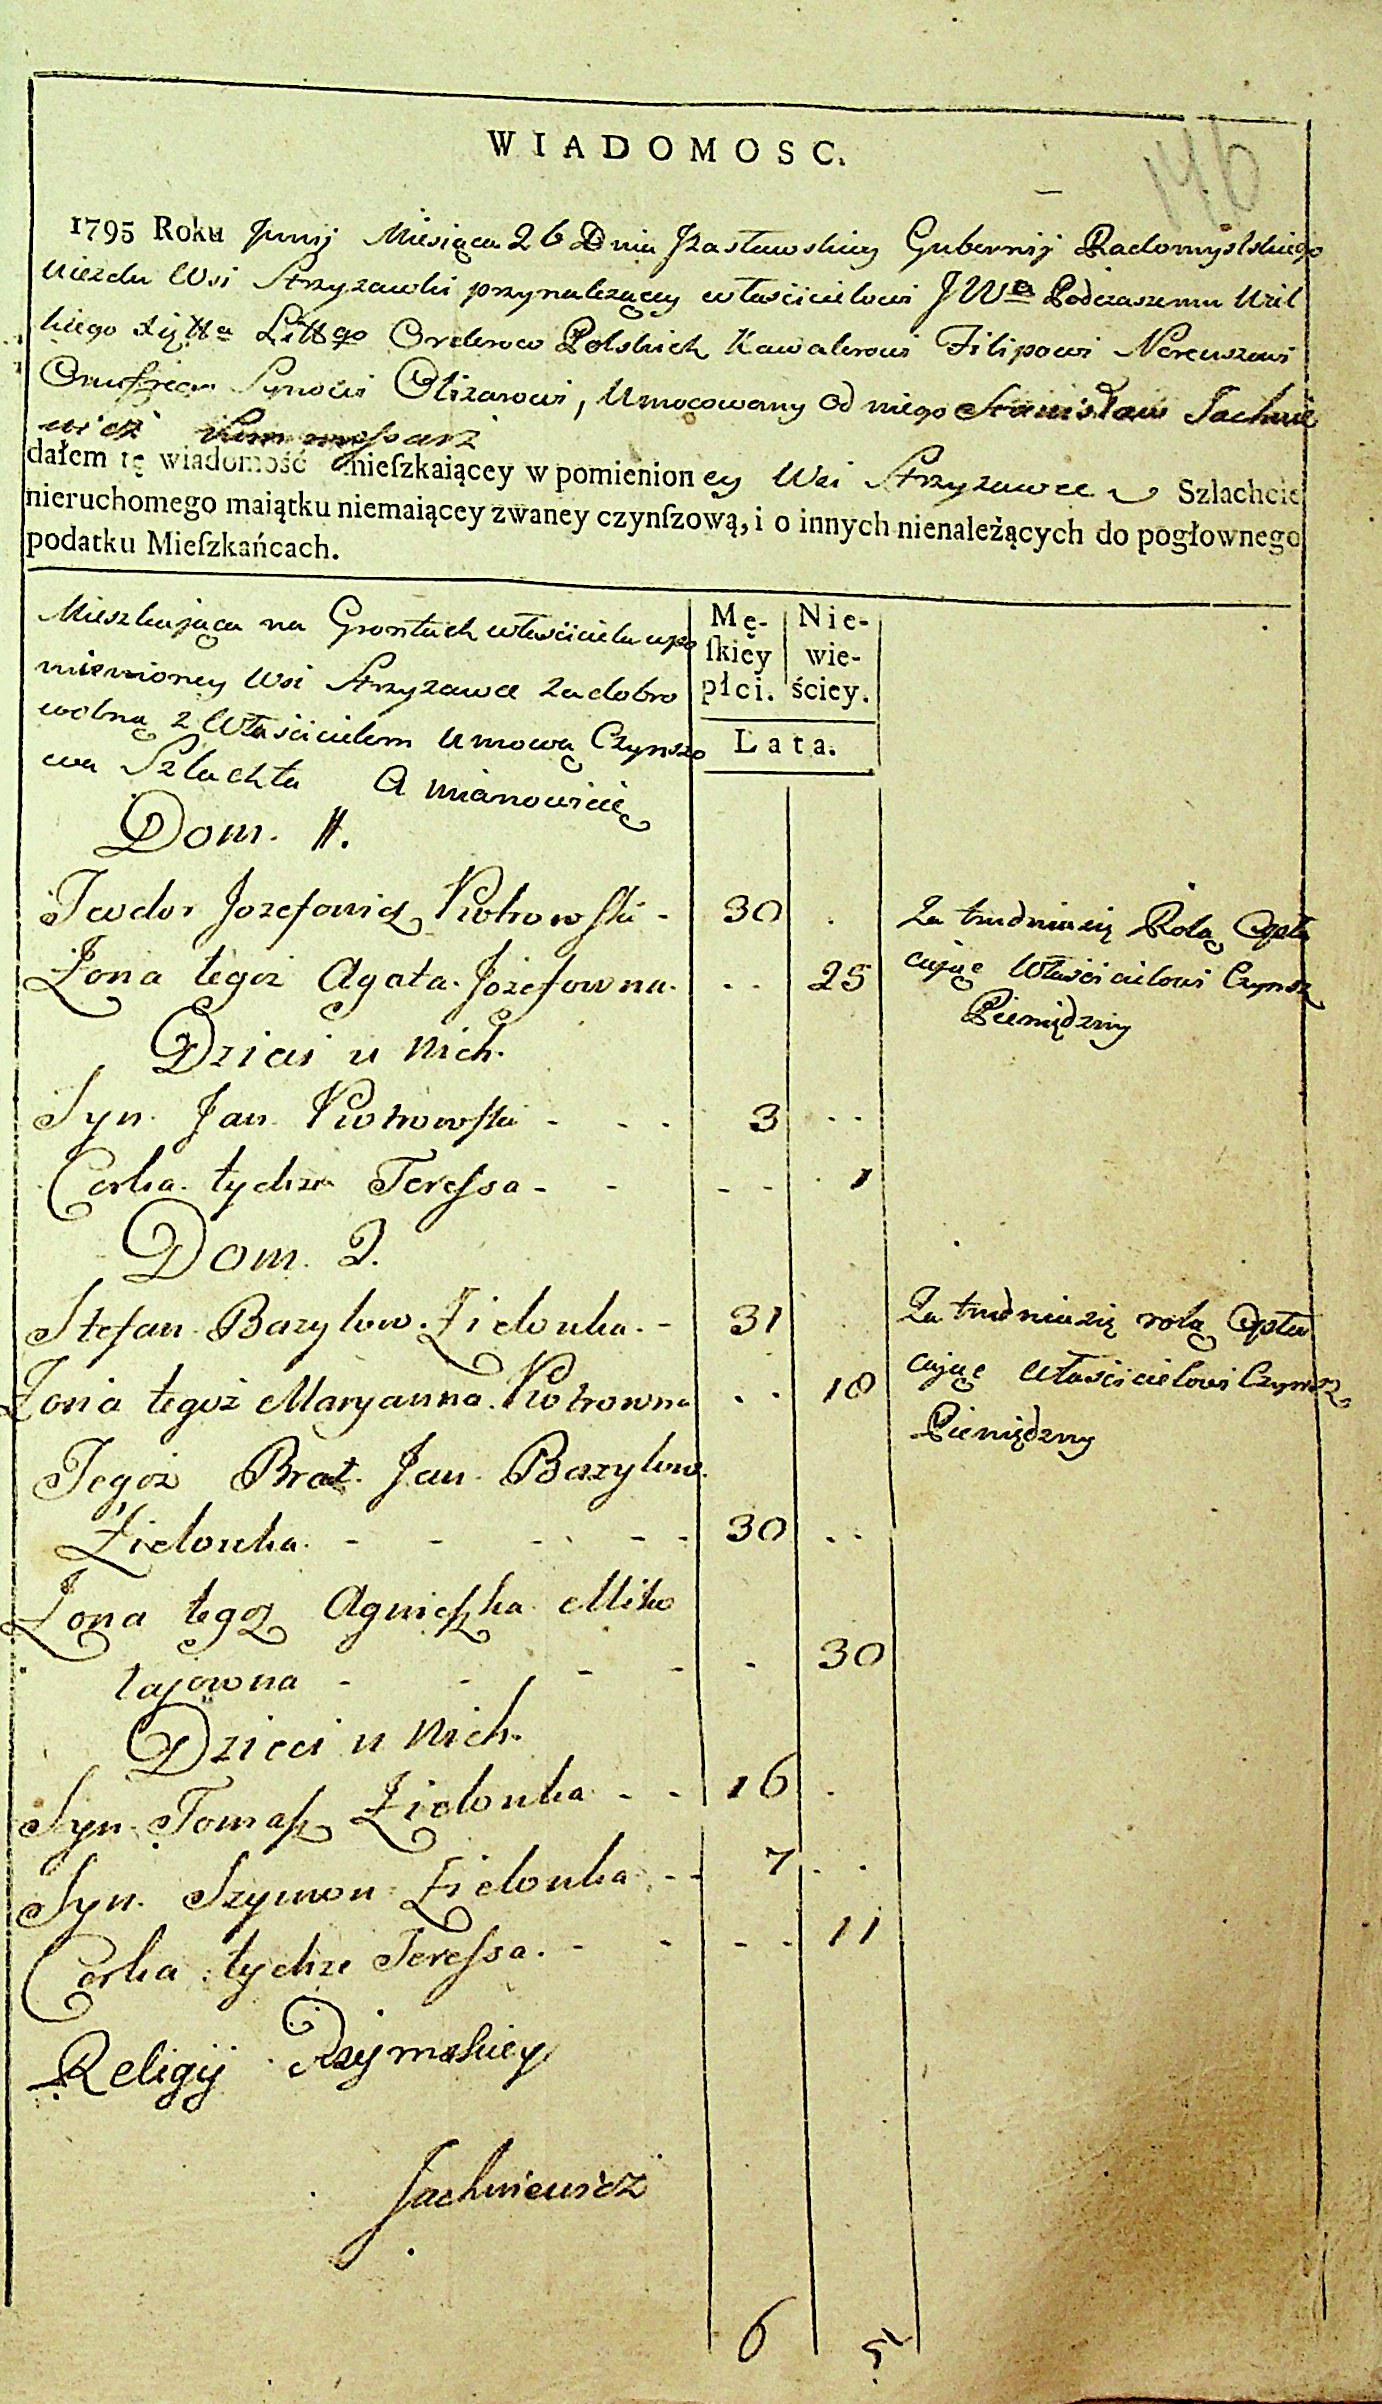 146
WIADOMOSC.
1795 Roku Junij Miesiąca 26 Dnia Jzasławskiey Gubernij Radomyslskiego
Uiezdu Wsi Strzyzawki przynalezącey właścicielowi J W<sup>o</sup> Podczaszemu Wiel
kiego Litt<sup>go</sup> Orderow Polskich Kawalerowi Filipowi Nereuszowi
Onufrego Synowi Olizarowi, Umocowany od niego Stanisław Jachnie
wicz Kommessarz
dałem tę wiadomość mieſzkaiącey w pomienioney Wsi Strzyzawce Szlachcie
nieruchomego maiątku niemaiącey zwaney czynſzową, i o innych nienależących do pogłownego
podatku Mieſzkańcach.
Mieszkająca na Grontach właściciela wpo
mienioney Wsi Strzyzawce za dobro
wolną z Właścicielem Umową Czynszo
wa Szlachta A mianowicię
Mę- Nie-
ſkiey wie-
płci. ściey.
Lata.
Dom. 1.
Teodor Jozefowicz Piotrowski - 30 . Zatrudnia się Rolą Opła
Żona tegoż Agata Józefowna. . . 25 cając Właścicielowi Czynsz
Pieniędzmy
Dzieci u nich.
Syn Jan Piotrowski - - - 3 . .
Corka tychze Teressa - - - - 1
Dom 2.
Stefan Bazylow. Zielonka. - 31 Zatrudnia się rolą Opła
Żona tegoż Maryanna Piotrowna . . 18 cając Właścicielowi Czynsz
Pieniędzmy
Tegoż Brat Jan Bazylow.
Zielonka. - - - - - 30 . .
Żona tegoż Agnieszka Miko
łajowna - - - - - 30
Dzieci u nich.
Syn Tomasz Zielonka - - 16 .
Syn. Szymon Zielonka - - 7 . .
Corka tychze Teressa. - - - - 11
Religij Rzymskiey
Jachniewicz
6 5